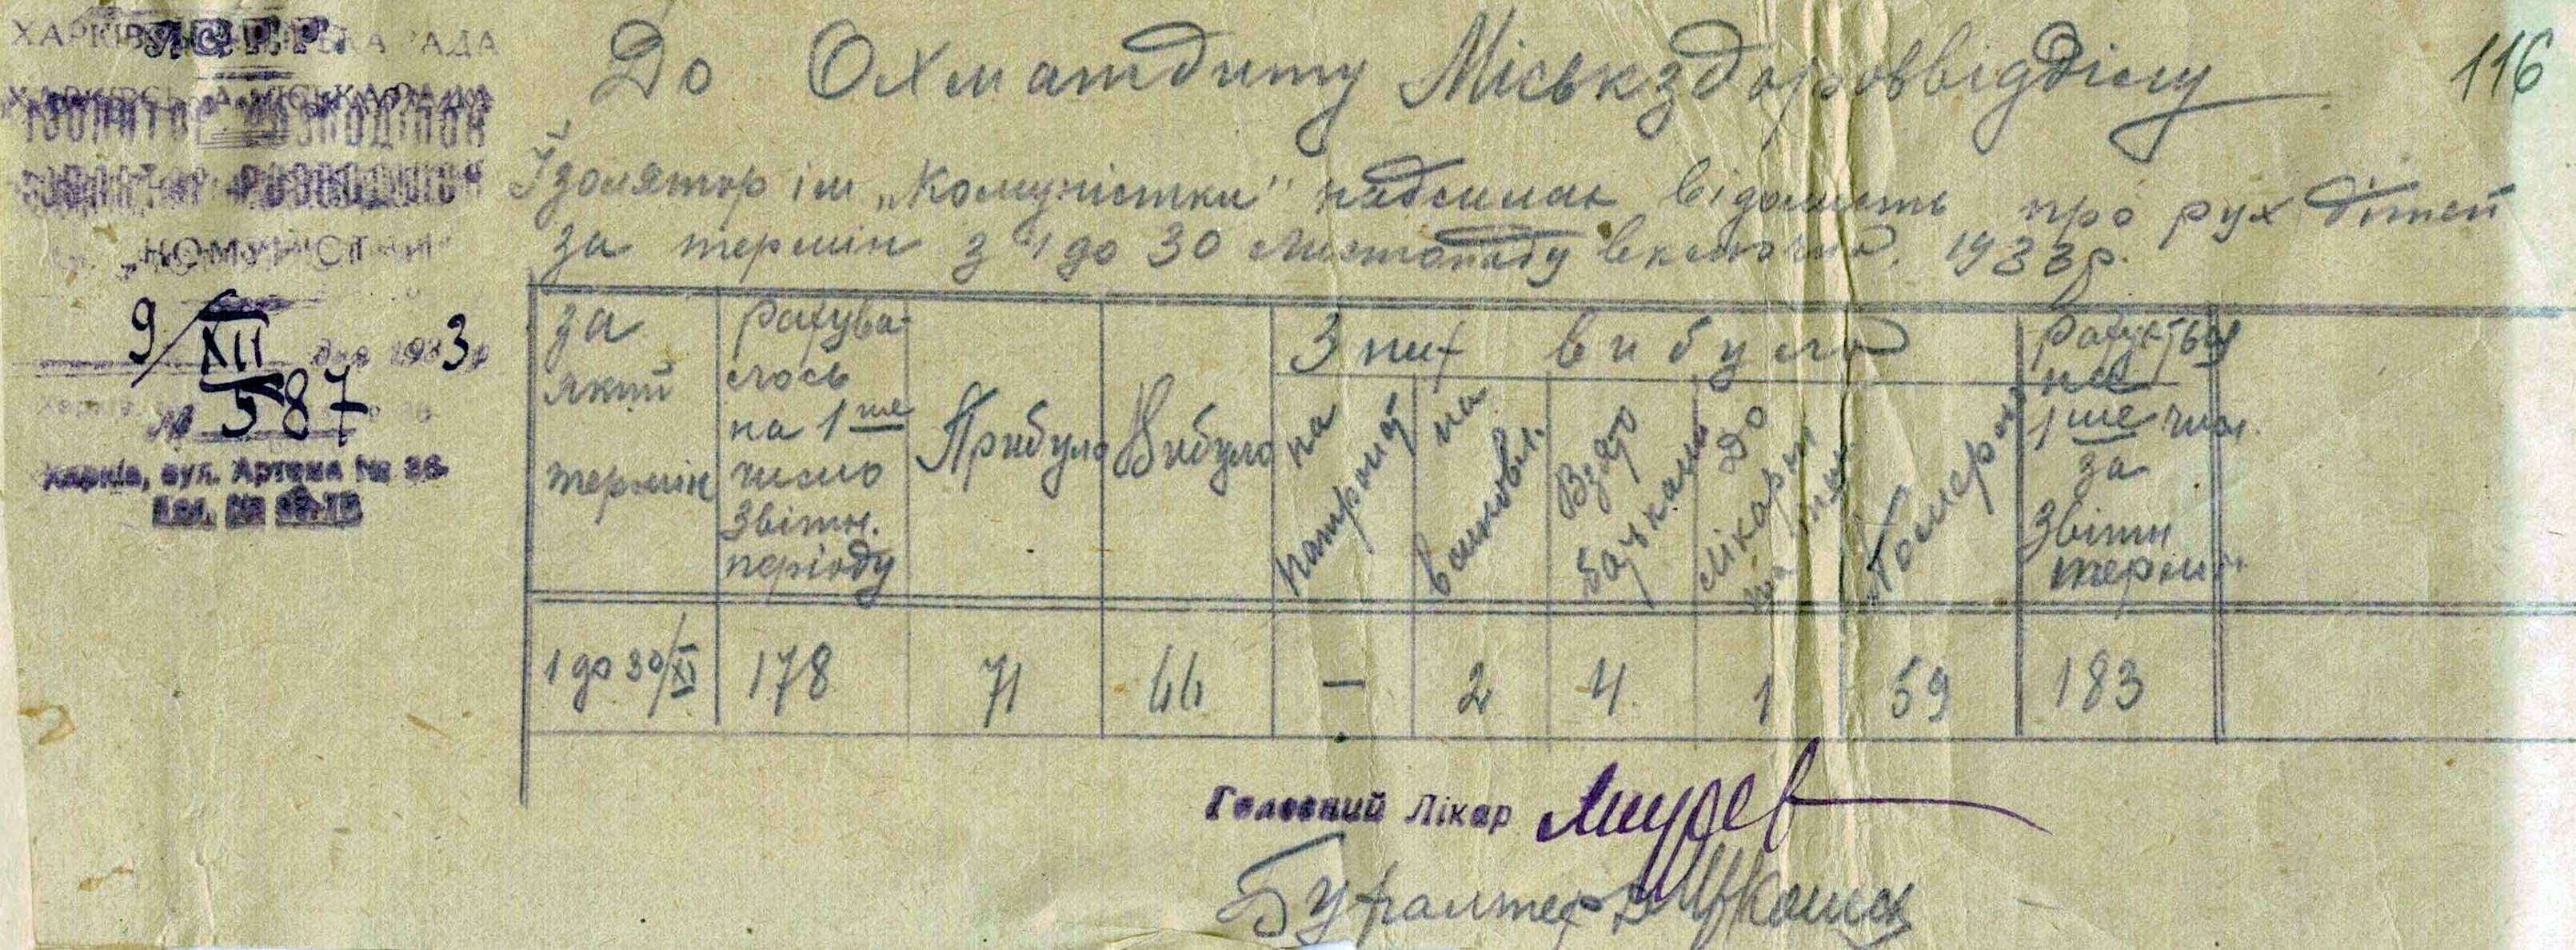 УСРР.
ХАРКІВСЬКА МІСЬКАРАДА
ІЗОЛЯТОР РОЗПОДІЛОК
„КОМУНІСТКИ"
9/XII дня 1933 р
№ 587
Харків, вул. Артема № 36
Тел. №
116
До Охматдиту Міськздороввідділу
Ізолятор ім „Комуністки" надсилає відомість про рух дітей
за термін з 1 до 30 листопаду включно. 1933 р.
за який термін
рахувалось на 1ше число звітн. періоду
Прибуло
Вибуло
З них вибуло
на патронат
на
Взято батьками
До лікарні
Померло
рахується на 1ше числ. за звітн термін
1 до 30/XI
178
71
66
—
2
4
1
59
183
Головний Лікар
Бухгалтер